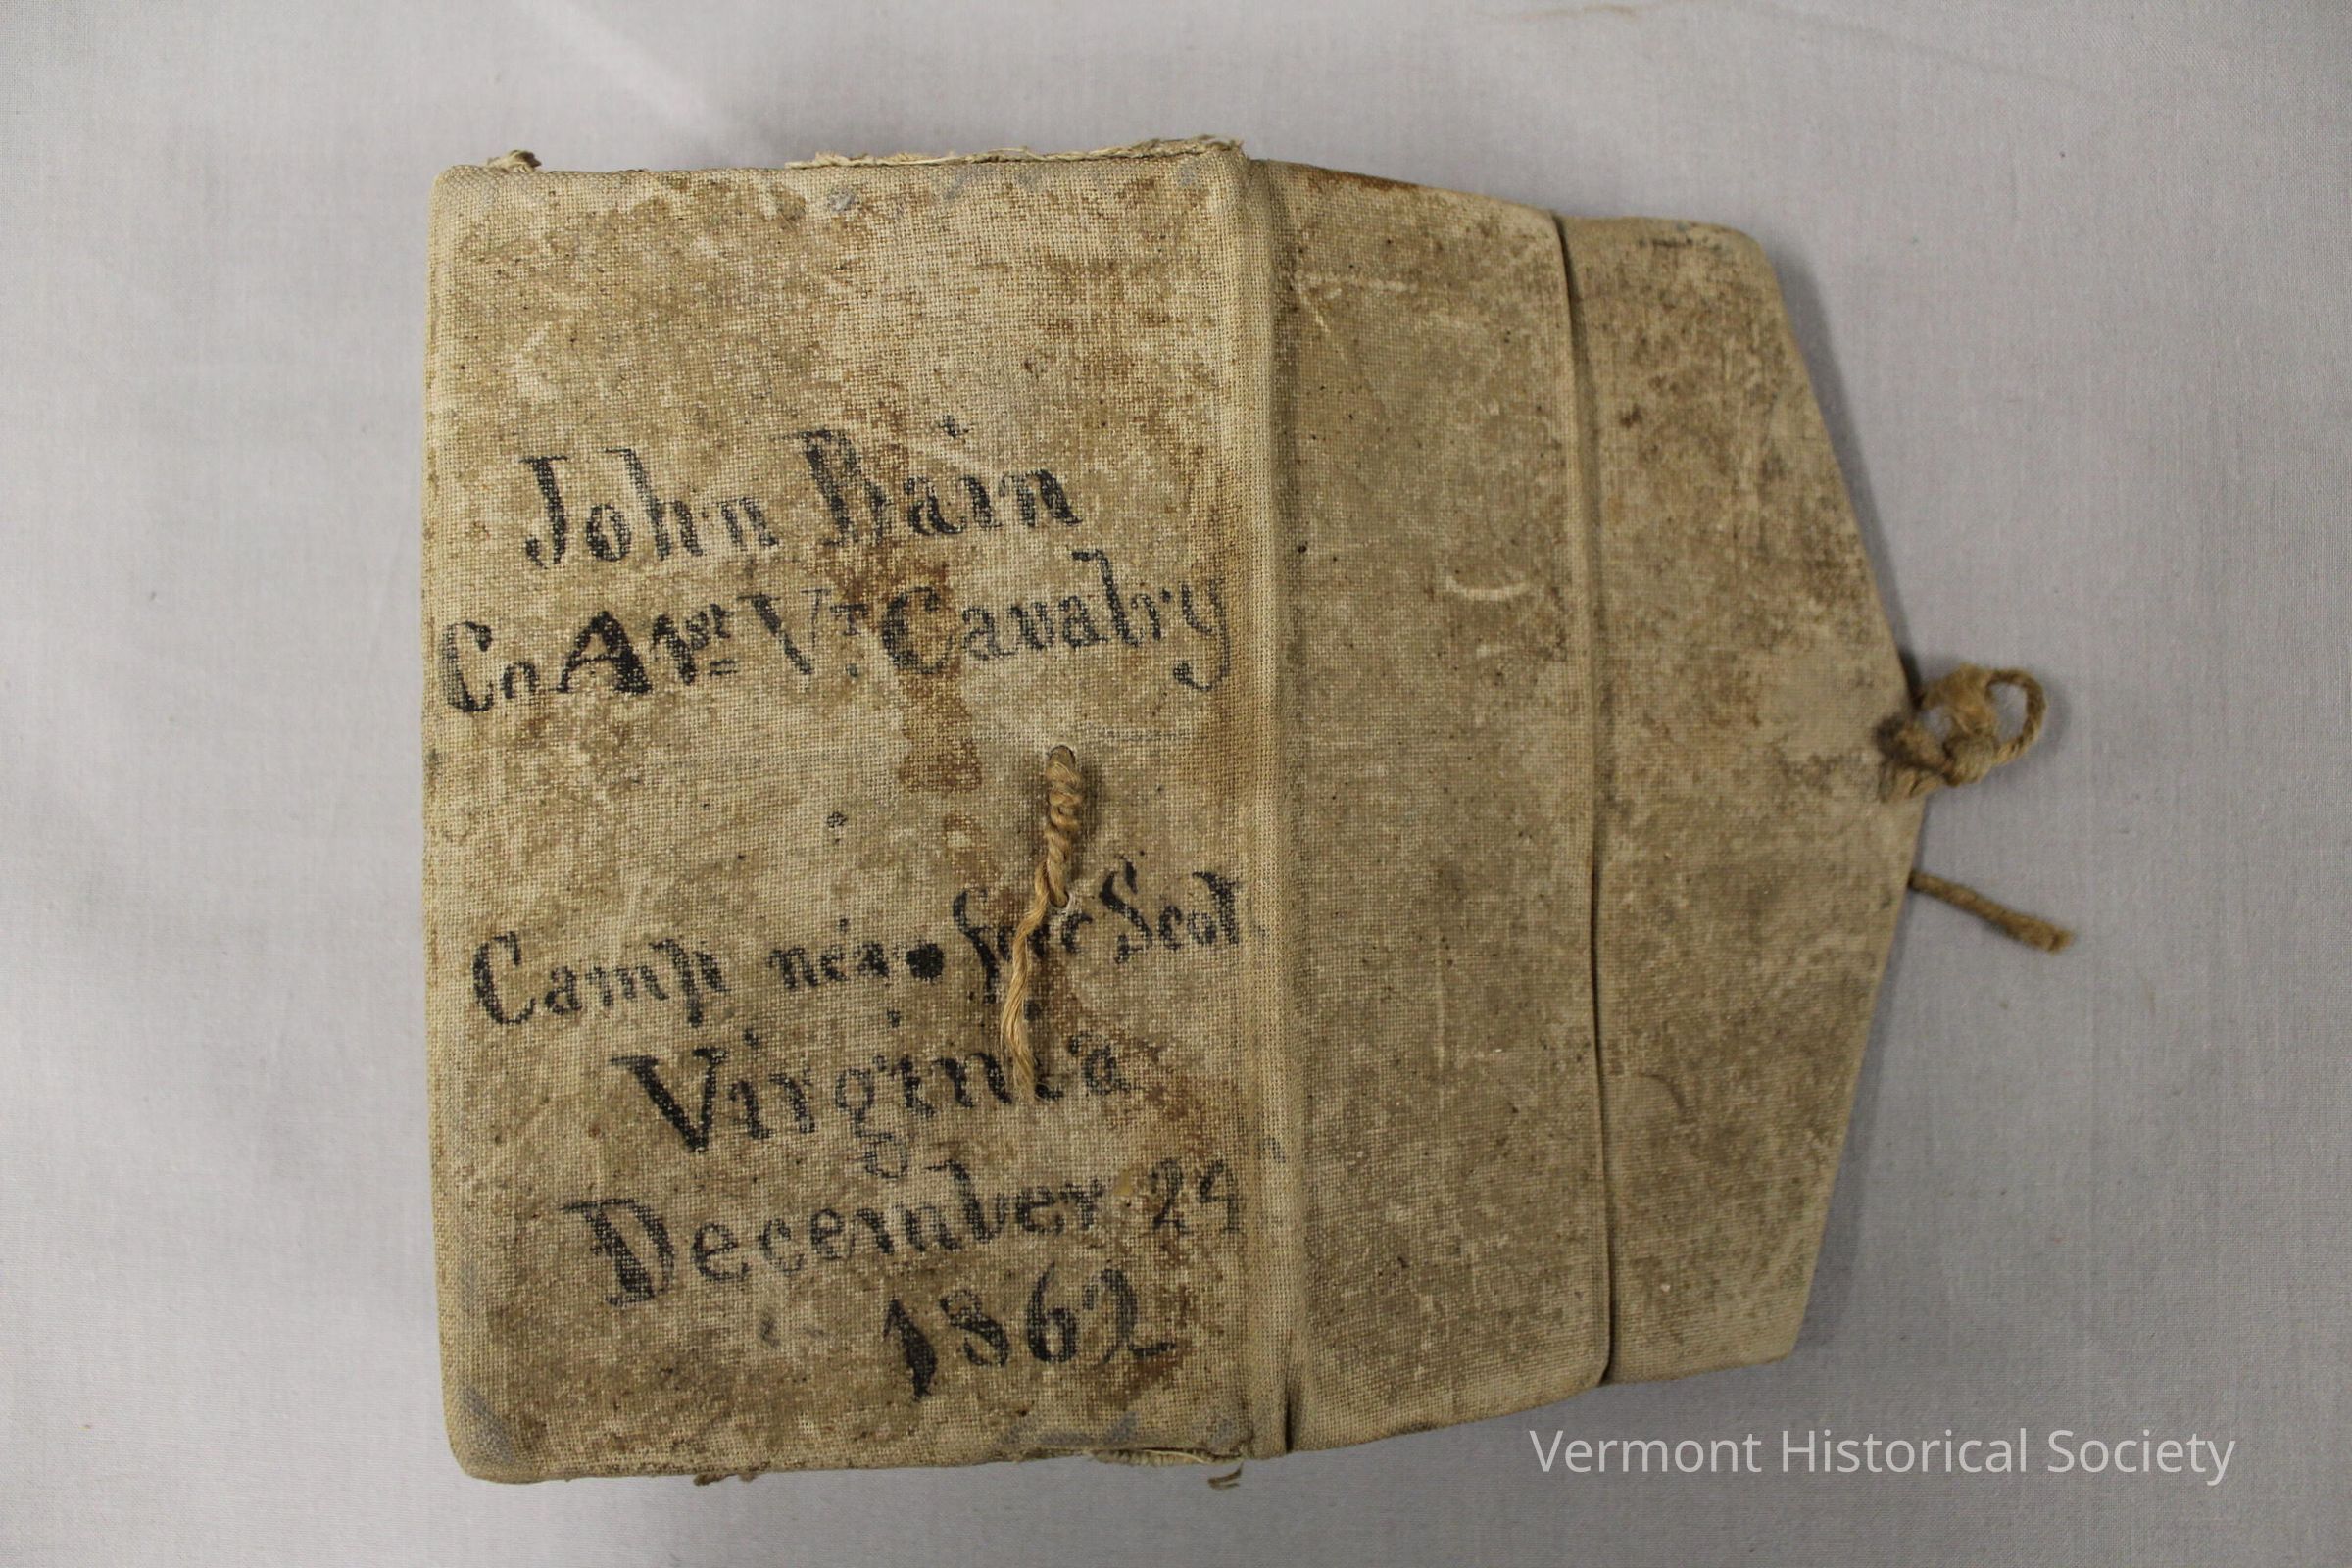 John Bain
Co A 1st Vt. Cavalry
Camp near Scot
Virginia
December 24
1862
Vermont Historical Society